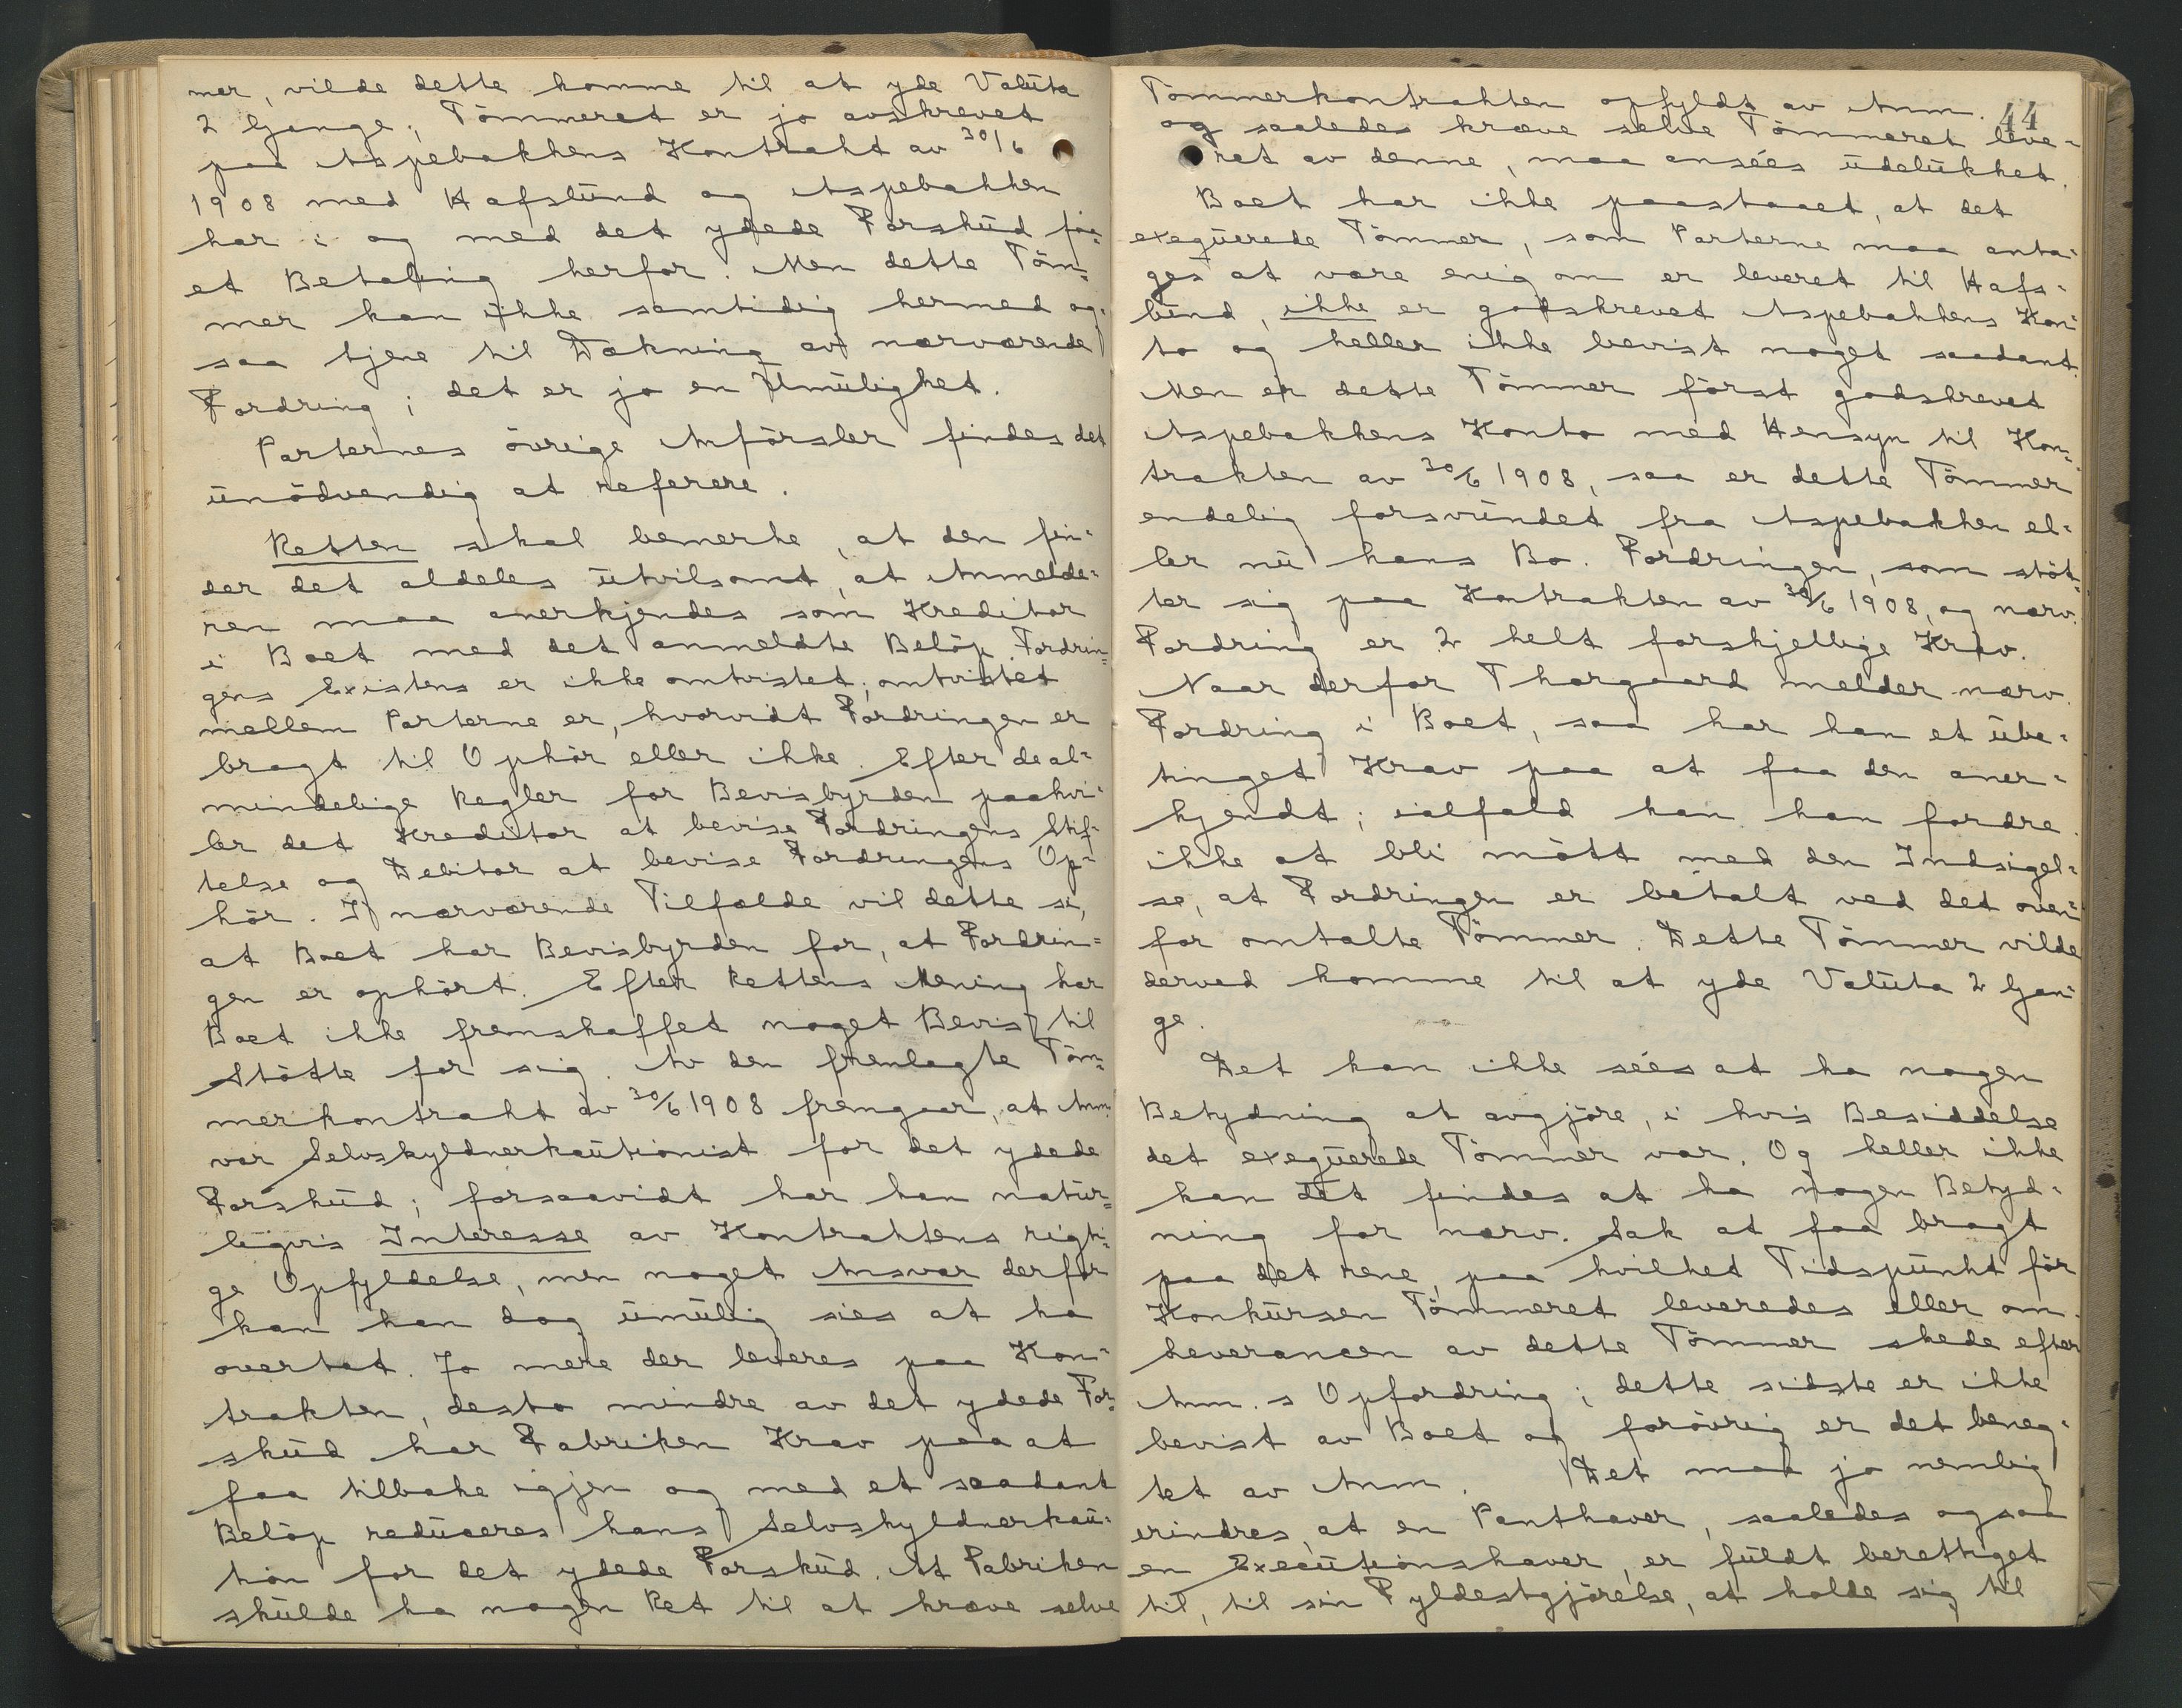 mer, vilde dette komme til at yde Valuta
2 Gange; Tömmeret er jo avskrevet
paa Aspebakkens Kontrakt av 30/6
1908 med Hafslund og Aspebakken
har i og med det ydede Forskud faa-
et Betaling herfor. Men dette Töm-
mer kan ikke samtidig hermed og-
saa tjene til Dækning av nærværende
Fordring; det er jo en Umulighet.
Parternes övrige Anförsler findes det
unödvendig at referere.
Retten skal bemerke, at den fin-
der det aldeles utvilsomt, at Anmelde-
ren maa anerkjendes som Kreditor
i Boet med det anmeldte Belöp. Fordrin-
gens Existens er ikke omtvistet; omtvistet
mellem Parterne er, hvorvidt Fordringen er
bragt til Ophör eller ikke. Efter de al-
mindelige Regler for Bevisbyrden paahvi-
ler det Kreditor at bevise Fordringens Stif-
telse og Debitor at bevise Fordringens Op-
hör. I nærværende Tilfælde vil dette si,
at Boet har Bevisbyrden for, at Fordrin-
gen er ophört. Efter Rettens Mening har
Boet ikke fremskaffet noget Bevis til
Stötte for sig. Av den fremlagte Töm-
merkontrakt av 30/6 1908 fremgaar, at Anm.
var Selvskyldnerkautionist for det ydede
Forskud; forsaavidt har han natur-
ligvis Interesse av Kontraktens rigti-
ge Opfyldelse, men noget Ansvar derfor
kan han dog umulig sies at ha
overtat. Jo mere der leveres paa Kon-
trakten, desto mindre av det ydede For-
skud har Fabriken Krav paa at
faa tilbake igjen og med et saadant
Belöp reduceres hans Selvskyldnerkau-
tion for det ydede Forskud. At Fabriken
skulde ha nogen Ret til at kræve selve
44
Tömmerkontrakten opfyldt av Anm.
og saaledes kræve selve Tömmeret leve-
ret av denne, maa ansées udelukket.
Boet har ikke paastaaet, at det
exequerede Tömmer, som Parterne maa anta-
ges at være enig om er leveret til Hafs-
lund, ikke er godskrevet Aspebakkens Kon-
to og heller ikke bevist noget saadant.
Men er dette Tömmer först godskrevet
Aspebakkens Konto med Hensyn til Kon-
trakten av 30/6 1908, saa er dette Tömmer
endelig forsvundet fra Aspebakken el-
ler nu hans Bo. Fordringen, som stöt-
ter sig paa Kontrakten av 30/6 1908, og nærv.
Fordring er 2 helt forskjellige Krav.
Naar derfor Thorgaard melder nærv.
Fordring i Boet, saa har han et übe-
tinget Krav paa at faa den aner-
kjendt; ialfald kan han fordre
ikke at bli mött med den Indsigel-
se, at Fordringen er betalt ved det oven-
for omtalte Tömmer. Dette Tömmer vilde
derved komme til at yde Valuta 2 Gan-
ge.
Det kan ikke sées at ha nogen
Betydning at avgjöre, i hvis Besiddelse
det exequerede Tömmer var. Og heller ikke
kan det findes at ha nogen Betyd-
ning for nærv. Sak at faa bragt
paa det rene, paa hvilket Tidspunkt för
Konkursen Tömmeret leveredes eller om
Leverancen av dette Tömmer skede efter
Anm.s Opfordring; dette sidste er ikke
bevist av Boet og forövrig er det beneg-
tet av Anm. Det maa jo nemlig
erindres, at en Panthaver, saaledes ogsaa
en Executionshaver, er fuldt berettiget
til, til sin Fyldestgjörelse, at holde sig til